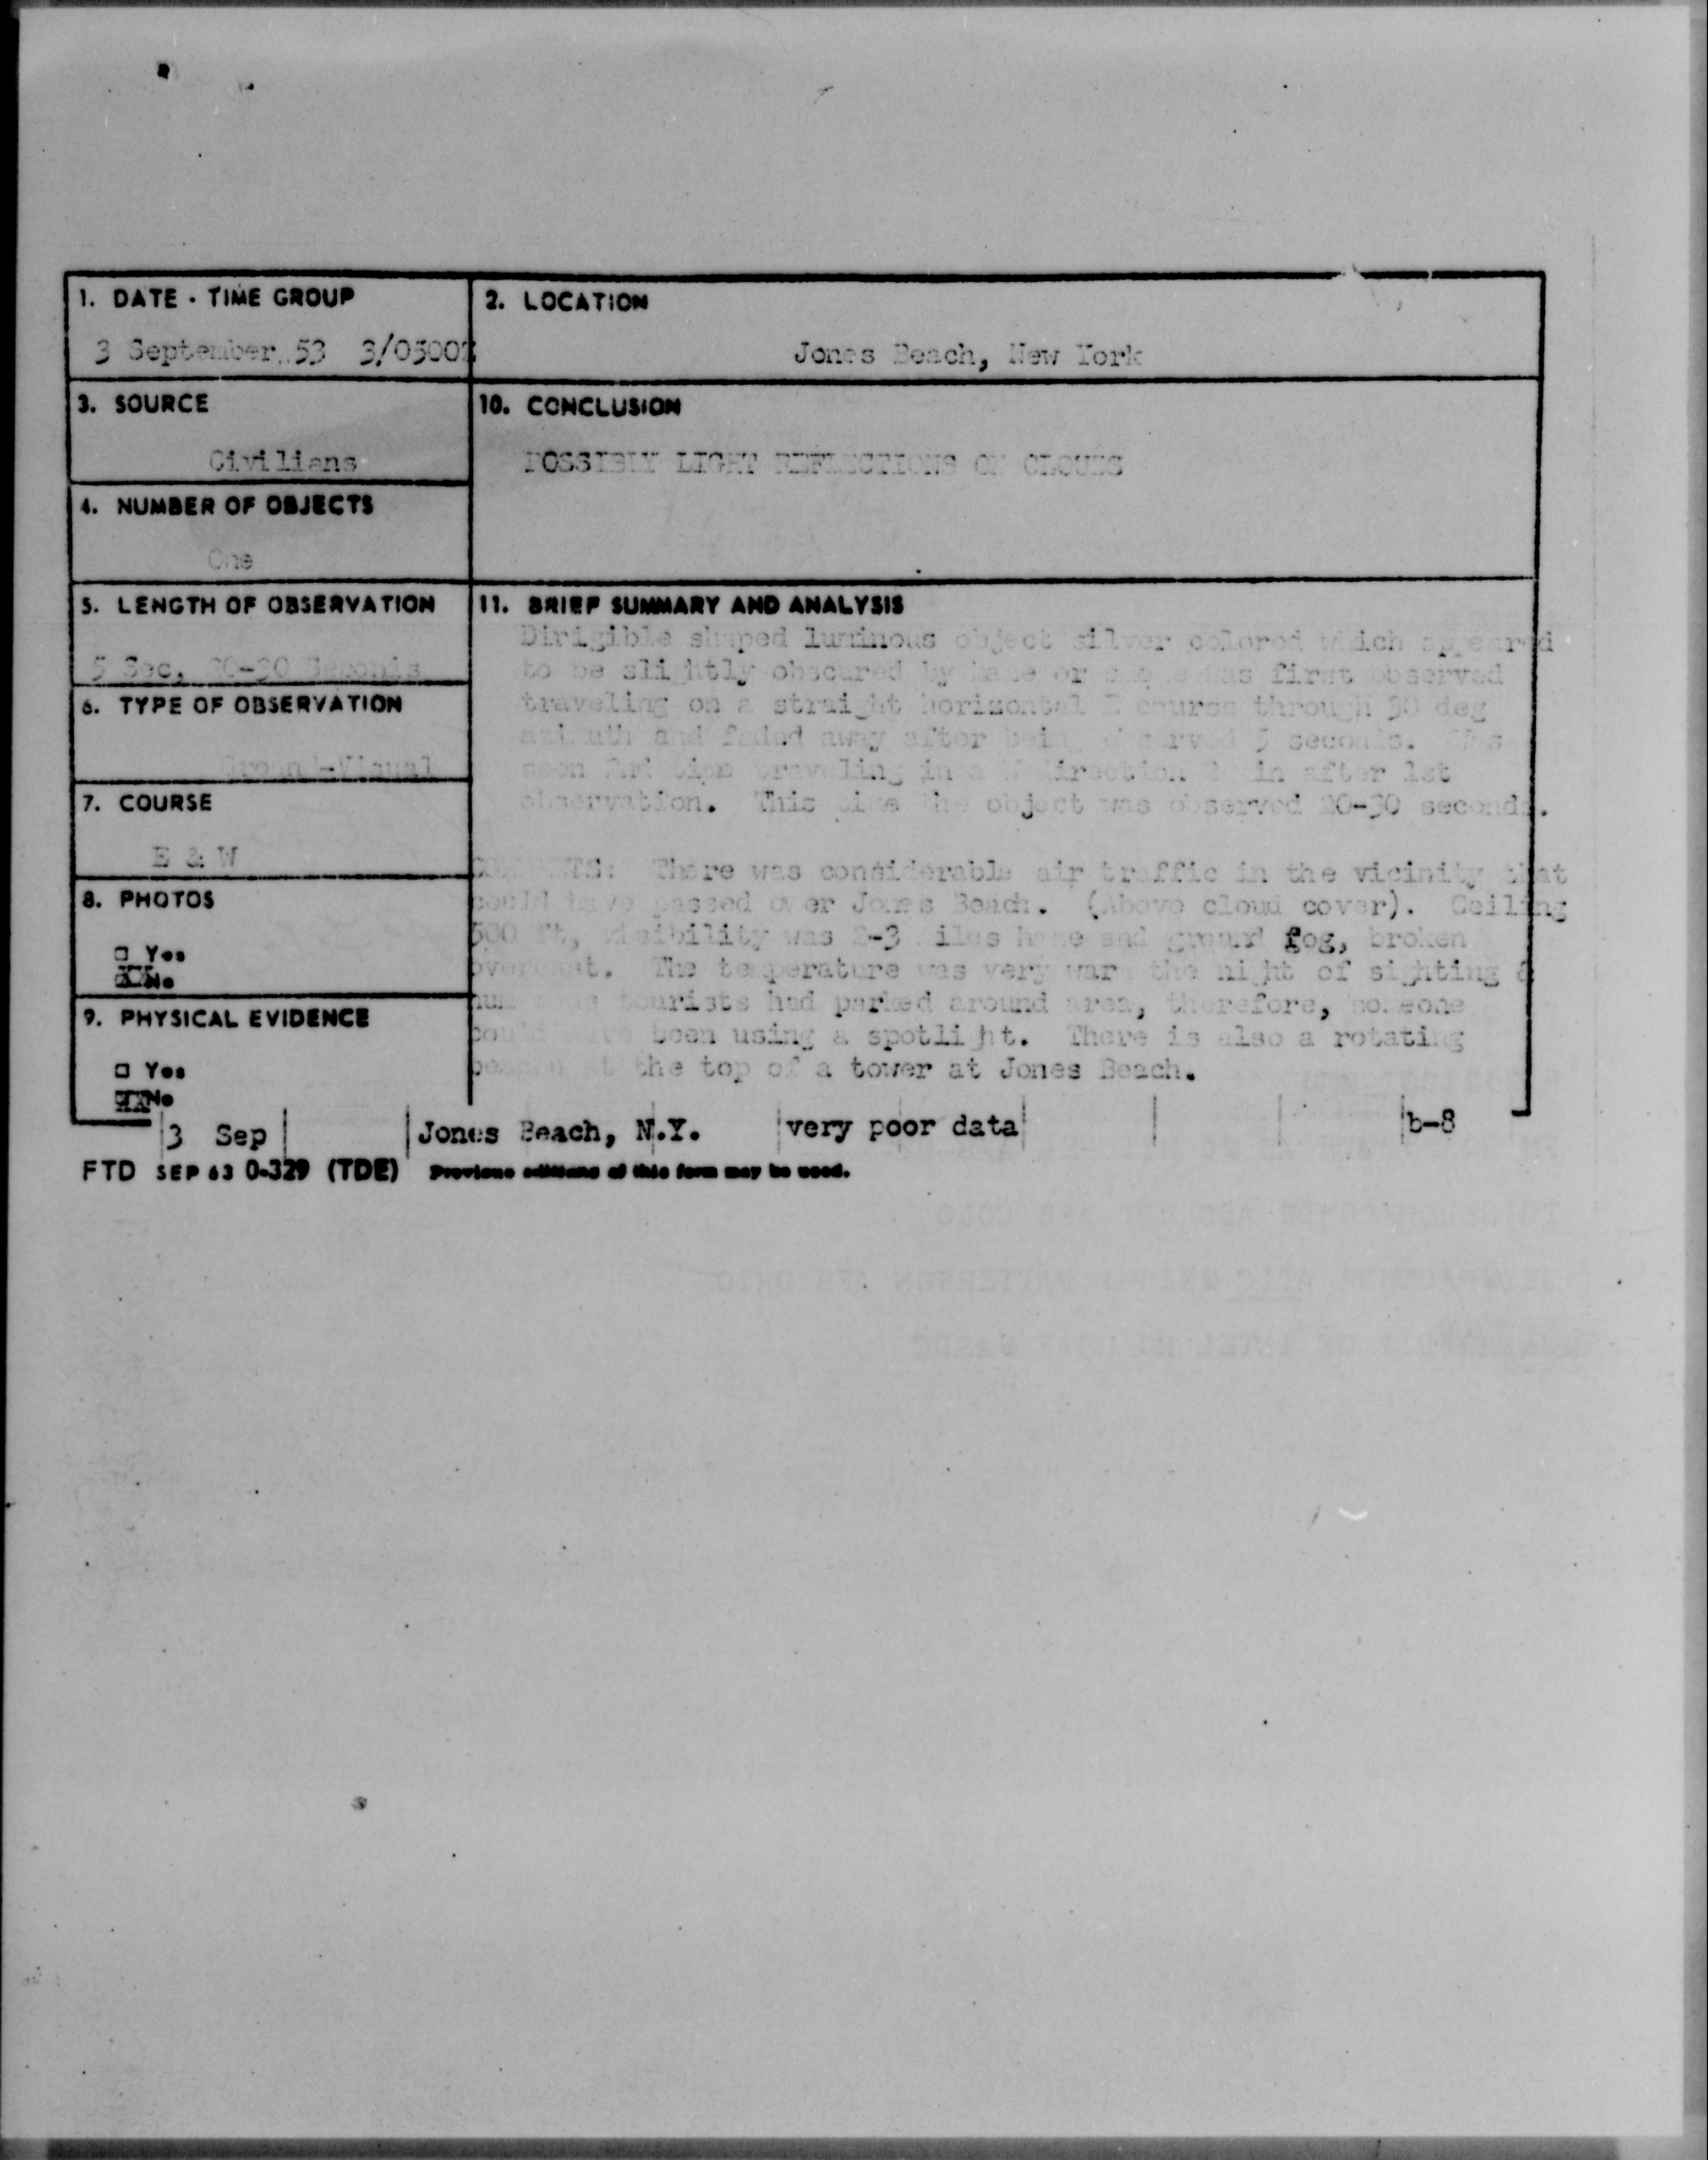 1. DATE - TIME GROUP
3 September 53 3/0500Z
2. LOCATION
Jones Beach, New York
3. SOURCE
Civilians
10. CONCLUSION
POSSIBLY LIGHT REFLECTIONS ON CLOUDS
4. NUMBER OF OBJECTS
One
5. LENGTH OF OBSERVATION
5 Sec, 20-30 Seconds
6. TYPE OF OBSERVATION
Ground-Visual
7. COURSE
E & W
8. PHOTOS
□ Yes
XX No
9. PHYSICAL EVIDENCE
□ Yes
XX No
11. BRIEF SUMMARY AND ANALYSIS
Dirigible shaped luminous object silver colored which appeared
to be slightly obscured by haze or smoke was first observed
traveling on a straight horizontal E course through 90 deg
azimuth and faded away after being observed 5 seconds. Was
seen 2nd time traveling in a W direction in after 1st
observation. This time the object was observed 20-30 seconds.
COMMENTS: There was considerable air traffic in the vicinity that
could have passed over Jones Beach. (Above cloud cover). Ceiling
500 ft, visibility was 2-3 miles haze and ground fog, broken
overcast. The temperature was very warm the night of sighting &
numerous tourists had parked around area, therefore, someone
could have been using a spotlight. There is also a rotating
beacon at the top of a tower at Jones Beach.
3 Sep Jones Beach, N.Y. very poor data b-8
FTD SEP 63 0-329 (TDE) Previous editions of this form may be used.